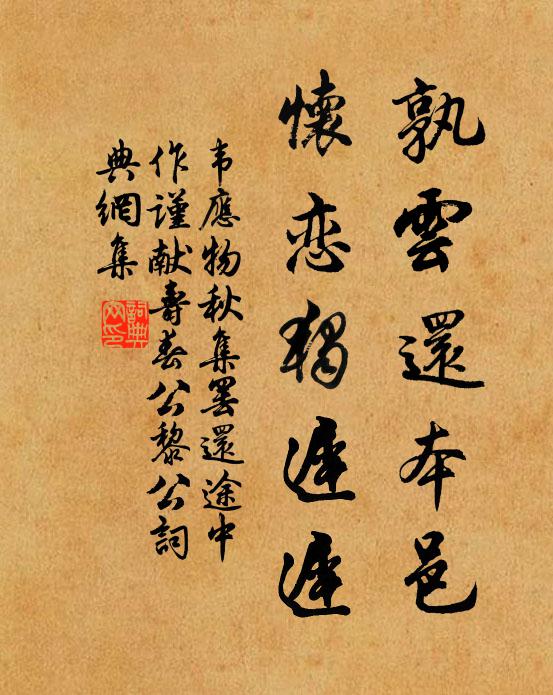 孰雲還本邑
懷恋獨遲遲
韦應物秋集罢還途中
作謹献壽春公黎公詞
典網集
詞典網印